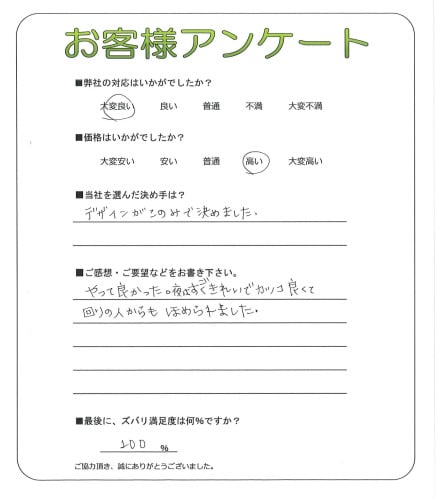 お客様アンケート
■弊社の対応はいかがでしたか？
大変良い 良い 普通 不満 大変不満
■価格はいかがでしたか？
大変安い 安い 普通 高い 大変高い
■当社を選んだ決め手は？
デザインがこのみで決めました.
■ご感想・ご要望などをお書き下さい。
やって良かった。夜はすごくきれいでカッコ良くて
回りの人からも ほめられました.
■最後に、ズバリ満足度は何%ですか？
100 %
ご協力頂き、誠にありがとうございました。